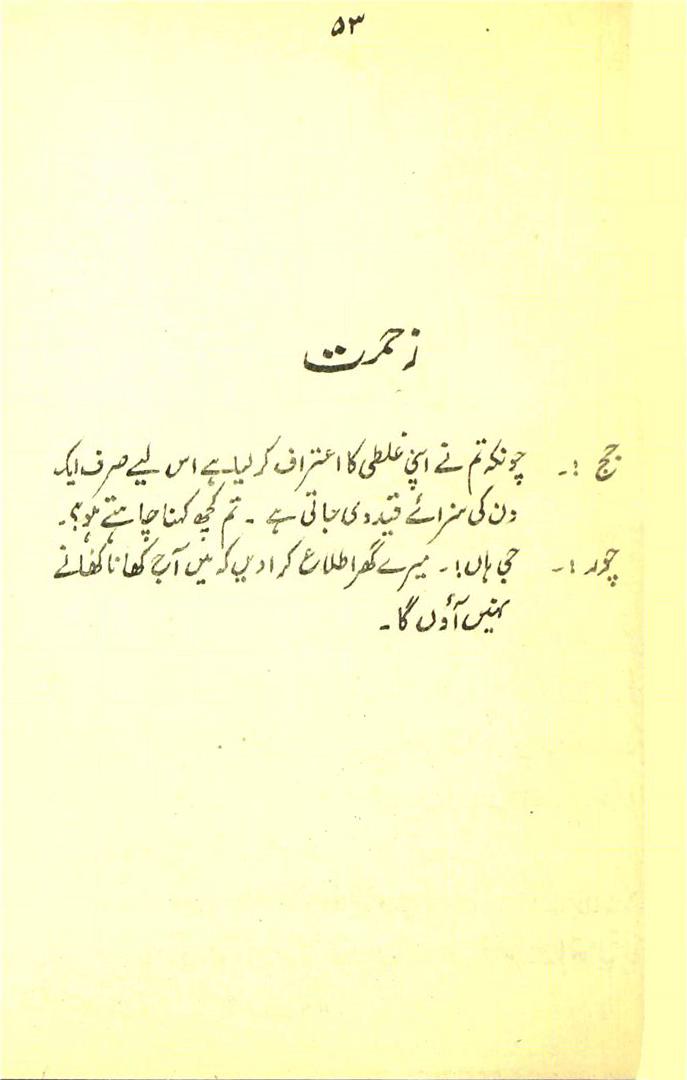 ۵۳
زحمت
جج :۔ چونکہ تم نے اپنی غلطی کا اعتراف کر لیا ہے اس لیے صرف ایک
دن کی سزائے قید دی جاتی ہے ۔ تم کچھ کہنا چاہتے ہو؟۔
چور :۔ جی ہاں!۔ میرے گھر اطلاع کرا دیں کہ میں آج کھانا کھانے
نہیں آؤں گا ۔